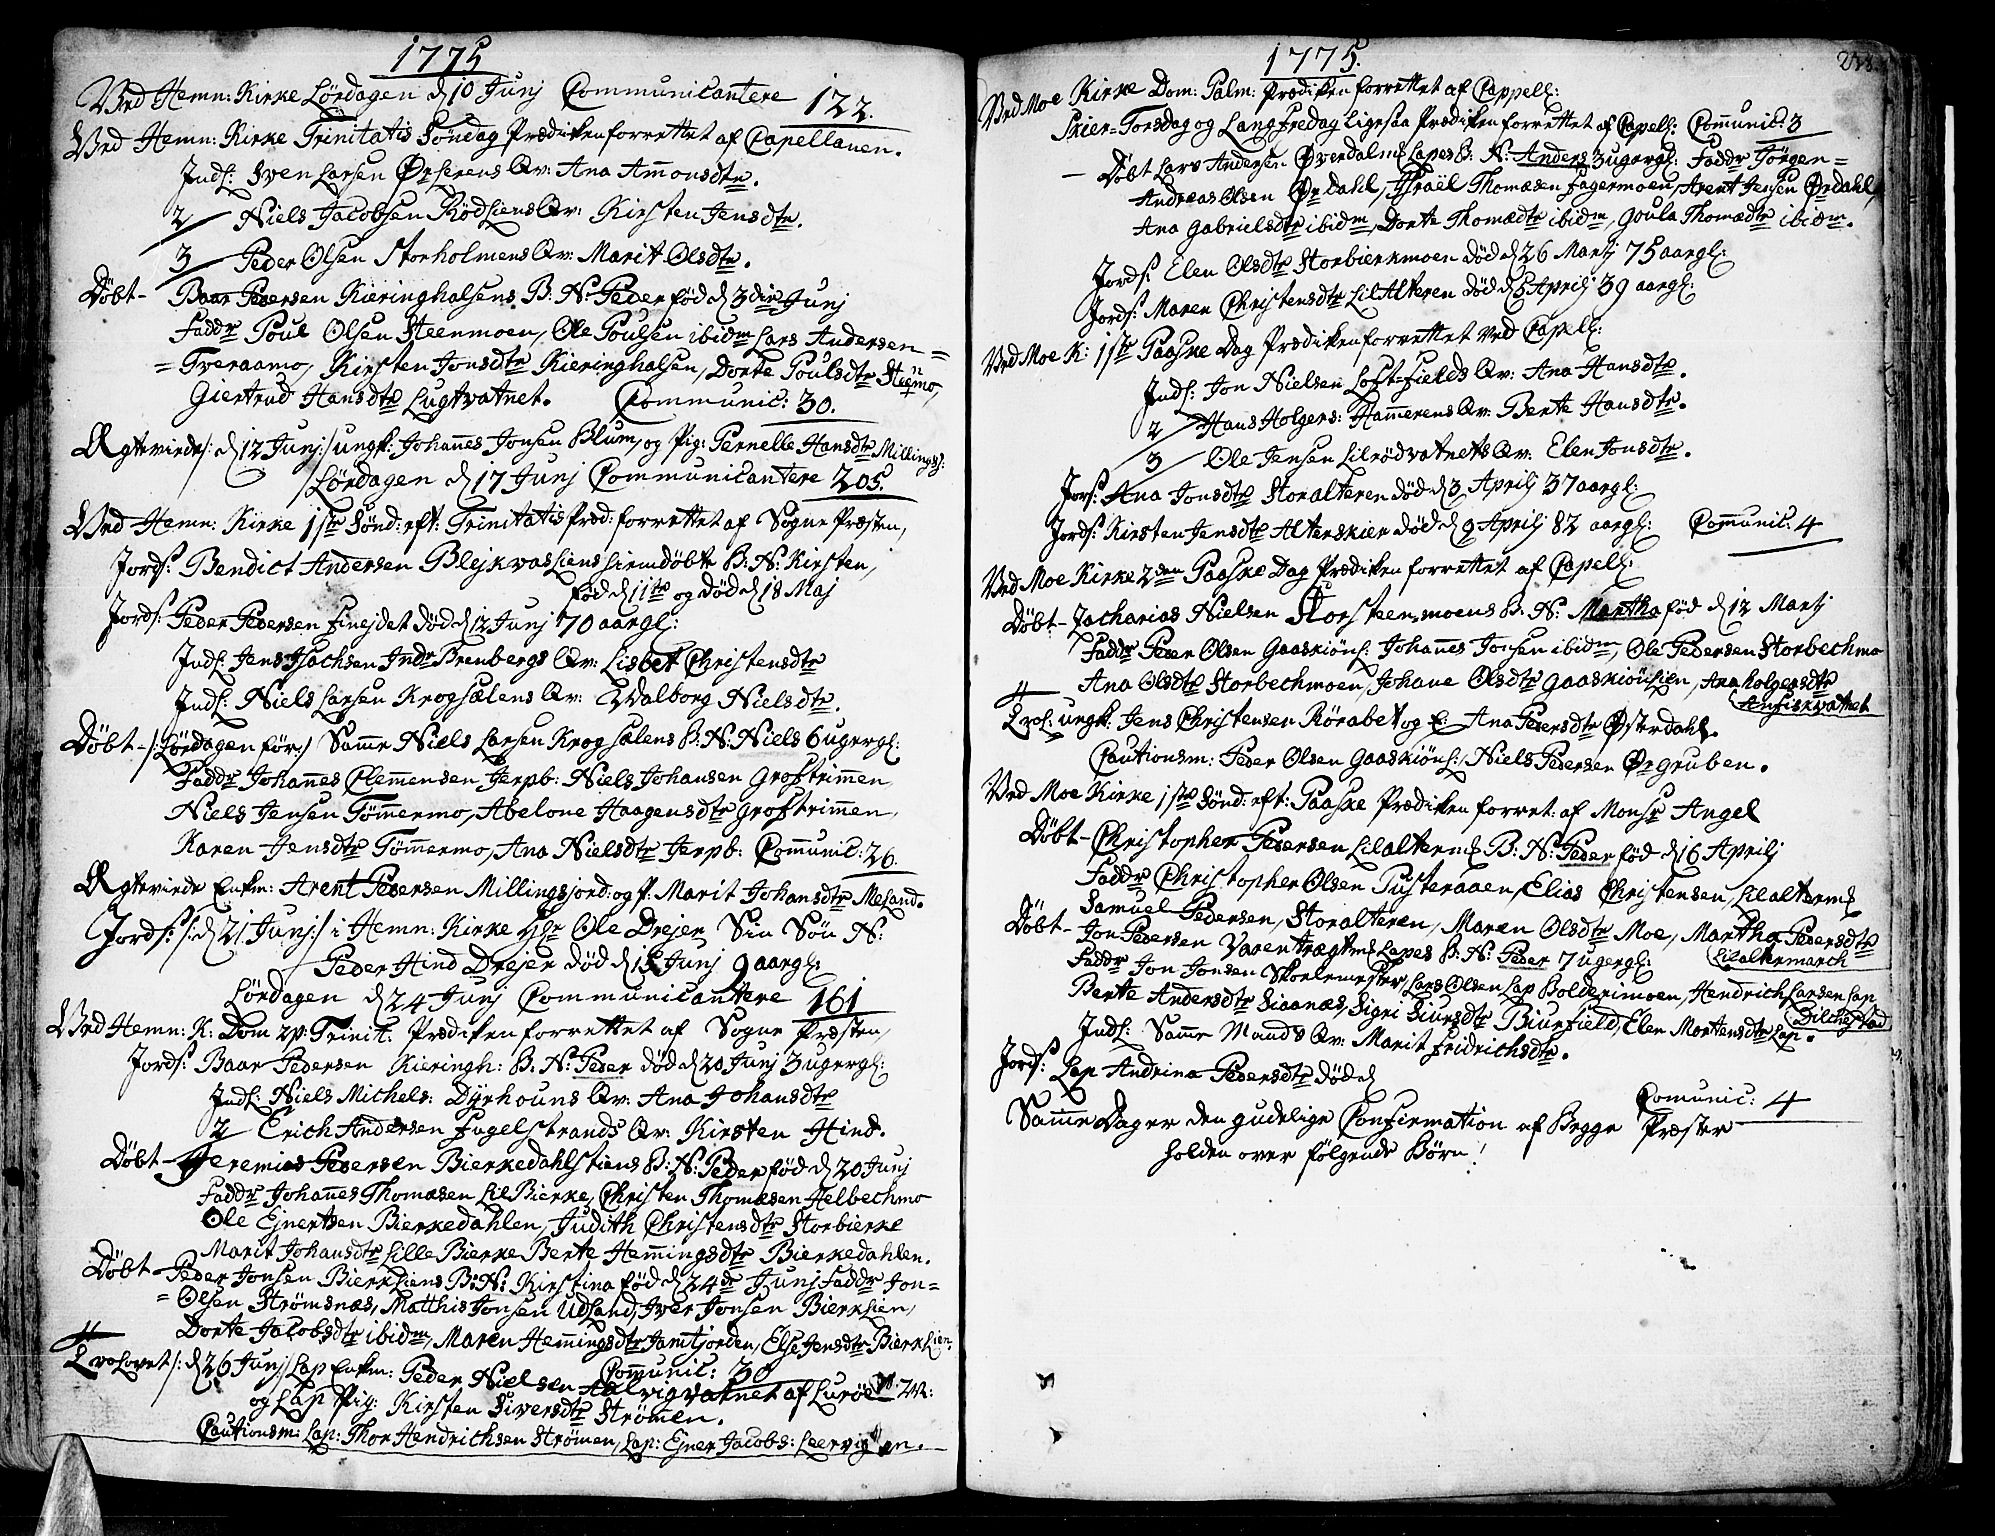 1775
Ved Hemn: Kirke Lördagen d 10 Junj Communicantere 122.
Ved Hemn: Kirke Trinitatis Söndag Prædiken forrettet af Capellanen.
Indl: Sven Larsen Ørserens Qv: Ana Amonsdtr.
2/ Niels Jacobsen Rödliens Qv: Kirsten Jensdtr.
3/ Peder Olsen Storholmens Qv: Marit Olsdtr.
Döbt - Baar Pedersen Kieringhalsens B: N: Peder föd d 3die Junj
Faddr Poul Olsen Steenmoen, Ole Poulsen ibidm Lars Andersen =
= Tveraamo, Kirsten Jonsdtr Kieringhalsen, Dorte Poulsdtr
Giertrud Hansdtr Lugtvatnet. Communic: 30.
Ægteviede /: d 12 Junj:/ ungk: Johannes Jonsen Blum, og Pig: Pernelle Hansdtr Millings:
Lördagen d 17 Junj Communicantere 205.
Ved Hemn: Kirke 1ste Sönd: eft: Trinitatis Præd: forrettet af Sogne Præsten,
Jords: Bendict Andersen Blejkvasliens hiemdöbte B: N: Kirsten,
föd d 11te og död d 18 Maj
Jords: Peder Pedersen Finejdet död d 12 Junj 70 aargl:
Indl: Jens Isachsen Indr Brenbergs Qv: Lisbet Christensdtr
Indl: Niels Larsen Krogsælens Qv: Walborg Nielsdtr.
Döbt - /: Lördagen för:/ Samme Niels Larsen Krogsælens B: N: Niels 6 ugergl:
Faddr Johannes Clemmensen Jerpb: Niels Johansen Groftrimmen
Niels Jensen Tömmermo, Abelone Haagensdtr Groftrimmen,
Karen Jensdtr Tömmermo, Ana Nielsdtr Jerpb: Communic: 26.
Ægteviede Enkm: Arent Pedersen Millingsjord: og P: Marit Johansdtr Mesand.
Jords: /: d 21 Junj:/ i Hemn: Kirke Hr Ole Drejer Sin Sön N:
Peder Hind Drejer död d 15 Junj 9 aargl:
Lördagen d 24 Junj Communicantere 161
Ved Hemn: K: Dom 2 p: Trinit: Prædiken forrettet af Sogne Præsten,
Jords: Baar Pedersen Kieringh: B: N: Peder död d 20 Junj 3 ugergl:
Indl: Niels Michels: Dyrhouns Qv: Ana Johansdtr
2 Erich Andersen Fugelstrands Qv: Kirsten Hind.
Döbt - Jeremias Pedersen Bierkedahlstiens B: N: Peder föd d 20 Junj
Faddr Johannes Thomæsen Lil Bierke, Christen Thomæsen Helbechmo
Ole Ejnertsen Bierkedahlen, Judith Christensdtr Storbierke
Marit Johansdtr Lille Bierke Berte Hemingsdtr Bierkedahlen.
Döbt - Peder Jonsen Bierkliens B: N: Kirstina föd d 24de Junj Faddr Jon =
= Olsen Strömsnæs, Matthis Jonsen Udsand, Iver Jonsen Bierklien,
Dorte Jacobsdtr ibidm, Maren Hemingsdtr Jamtjorden, Else Jensdtr Bierklien
Communic: 30
Trolovet /: d 26 Junj:/ Lap Enkm: Peder Nielsen af Luröe
og Lap Pig: Kirsten Siversdtr Strömen.
Cautionsm: Lap: Thor Hendrichsen Strömen, Lap: Ejner Jacobs: Leervigen.
1775.
Ved Moe Kirke Dom: Palm: Prædiken forrettet af Cappell:
Skier-Torsdag og Langfredag Ligesaa Prædiken forrettet af Capell: Communic: 3
- Döbt Lars Andersen Øverdalens Lapes B: N: Anders 3 ugergl: Faddr Jörgen =
Andreas Olsen Ørdahl, Israël Thomæsen Fagermoen, Arent Jensen Ørdahl,
Ana Gabrielsdtr ibidm, Dorte Thomædtr ibidm, Goula Thomædtr ibidm.
Jords: Elen Olsdtr Storbierkmoen död d 26 Martj 75 aargl:
Jords: Maren Christensdtr Lil Alteren död d 5 Aprilj 39 aargl:
Ved Moe K: 1ste Paaske Dag Prædiken forrettet ved Capell:
Indl: Jon Nielsen Loftfields Qv: Ana Hansdtr.
2/ Hans Holgers: Hammerens Qv: Berte Hansdtr.
3/ Ole Jensen Lilrödvatnets Qv: Elen Jonsdtr.
Jors: Ana Jonsdtr Storalteren död d 3 Aprilj 37 aargl:
Jords: Kirsten Jensdtr Alterskier död d 9 Aprilj 82 aargl: Communic: 4
Ved Moe Kirke 2den Paaske Dag Prædiken forrettet af Capell:
Döbt - Zacharias Nielsen Storsteenmoens B: N: Martha föd d 12 Martj
Faddr Peder Olsen Gaaskiöns: Johannes Jonsen ibidm, Ole Pedersen Storbechmo
Ana Olsdtr Storbechmoen, Johane Olsdtr Gaaskiönlien, Ana Holgersdtr
Anfiskvatnet
Trol: ungk: Jens Christensen Rörabet og P: Ana Pedersdtr Østerdahl.
Cautionsm: Peder Olsen Gaaskiöns:, Niels Pedersen Ørgruben.
Ved Moe Kirke 1ste Sönd: eft: Paaske Prædiken forret: af Monsr Angel
Döbt - Christopher Pedersen Lilalterens B: N: Peder föd d 16 Aprilj
Faddr Christopher Olsen Tusteraaen, Elias Christensen, Lilalterens
Samuel Pedersen, Storalteren, Maren Olsdtr Moe, Martha Pedersdtr
Lilaltermarch
Döbt - Jon Pedersen Lapes B: N: Peder 7 ugergl:
Faddr Jon Jonsen Skolemester, Lars Olsen Lap Bolderimoen, Hendrich Larsen Lap
Berte Andersdtr Siaanæs, Sigri Siursdtr Biurfield, Elen Mortensdtr Lap.
Indl: Samme Mands Qv: Marit Fridrichsdtr.
Jords: Lap Andrina Pedersdtr död d
Communic: 4
Samme Dag er den gudelige Confirmation af Begge Præster
holden over fölgende Börn!